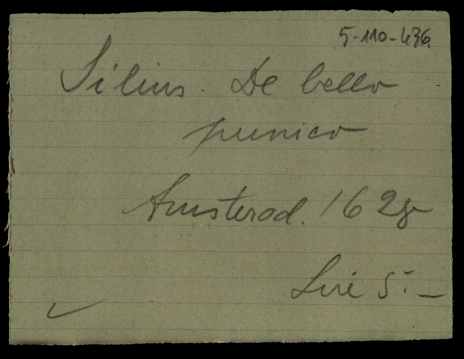 5-110-436.
Silius. De bello
punico
Amsterod. 1628
Lire 5:—